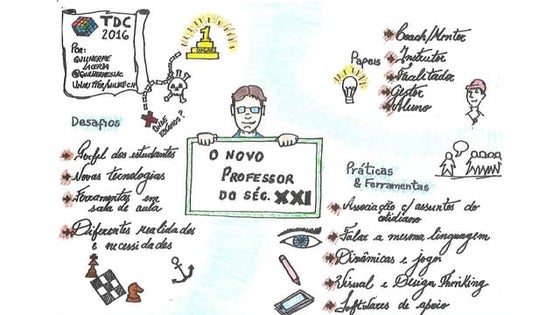 TDC
2016
Por:
Guilherme
Lacerda
1
Lugar
Onde estamos?
Desafios
Perfil dos estudantes
Novas tecnologias
Ferramentas em
sala de aula
Diferentes realidades
e necessidades
O NOVO
PROFESSOR
DO SÉC. XXI
Papeis
Coach/Mentor
Instrutor
Facilitador
Gestor
Aluno
Práticas
& Ferramentas
Associação c/ assuntos do
cotidiano
Falar a mesma linguagem
Dinâmicas e jogos
Visual e Design Thinking
Softwares de apoio